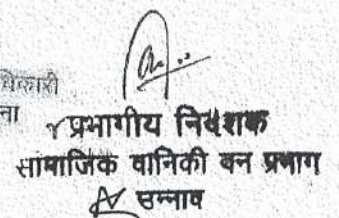 ना
प्रभागीय निदेशक
सामाजिक वानिकी वन प्रभाग
उन्नाव